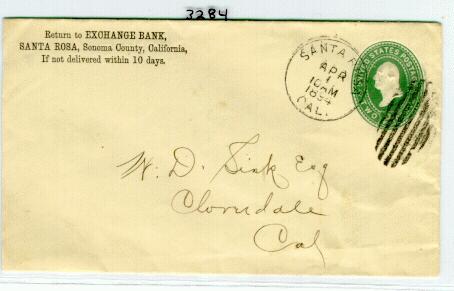 3284
Return to EXCHANGE BANK,
SANTA ROSA, Sonoma County, California,
If not delivered within 10 days.
SANTA R
APR
1
10 AM
1894
CAL.
UNITED STATES POSTAGE
TWO
W. D. Sink Esq
Cloverdale
Cal